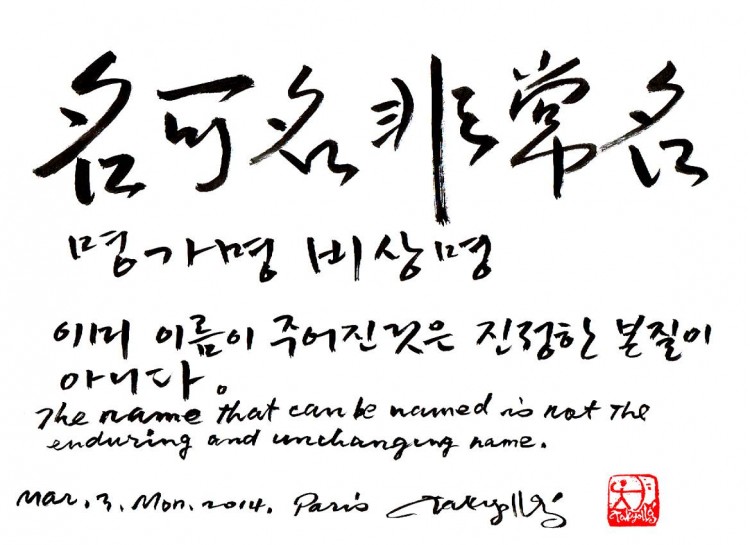 名可名非常名
명가명 비상명
이미 이름이 주어진것은 진정한 본질이
아니다.
The name that can be named is not The
enduring and unchanging name.
Mar. 3. Mon. 2014. Paris